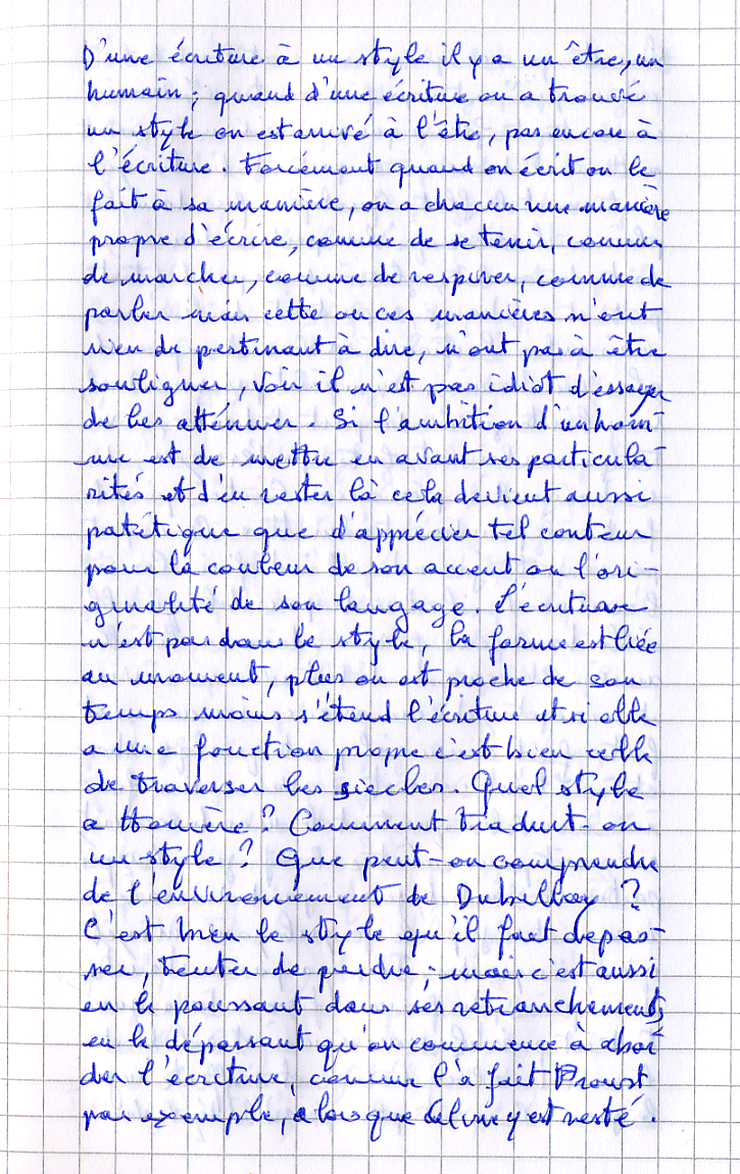 D'une écriture à un style il y a un être, un
humain ; quand d'une écriture on a trouvé
un style on est arrivé à l'être, pas encore à
l'écriture. Forcément quand on écrit on le
fait à sa manière, on a chacun une manière
propre d'écrire, comme de se tenir, comme
de marcher, comme de respirer, comme de
parler mais cette ou ces manières n'ont
rien de pertinant à dire, n'ont pas à être
souligner, voir il n'est pas idiot d'essayer
de les atténuer. Si l'ambition d'un hom-
me est de mettre en avant ses particula-
rités et d'en rester là cela devient aussi
patétique que d'apprécier tel conteur
pour la couleur de son accent ou l'ori-
ginalité de son langage. L'écriture
n'est pas dans le style, la forme est liée
au moment, plus on est proche de son
temps moins s'étend l'écriture et si elle
a une fonction propre c'est bien celle
de traverser les siecles. Quel style
a Homère ? Comment traduit-on
un style ? Que peut-on comprendre
de l'environement de Dubellay ?
C'est bien le style qu'il faut dépas-
ser, tenter de perdre ; mais c'est aussi
en le poussant dans ses retranchements,
en le dépassant qu'on commence à abor-
der l'écriture, comme l'a fait Proust
par exemple, alors que Céline y est resté.